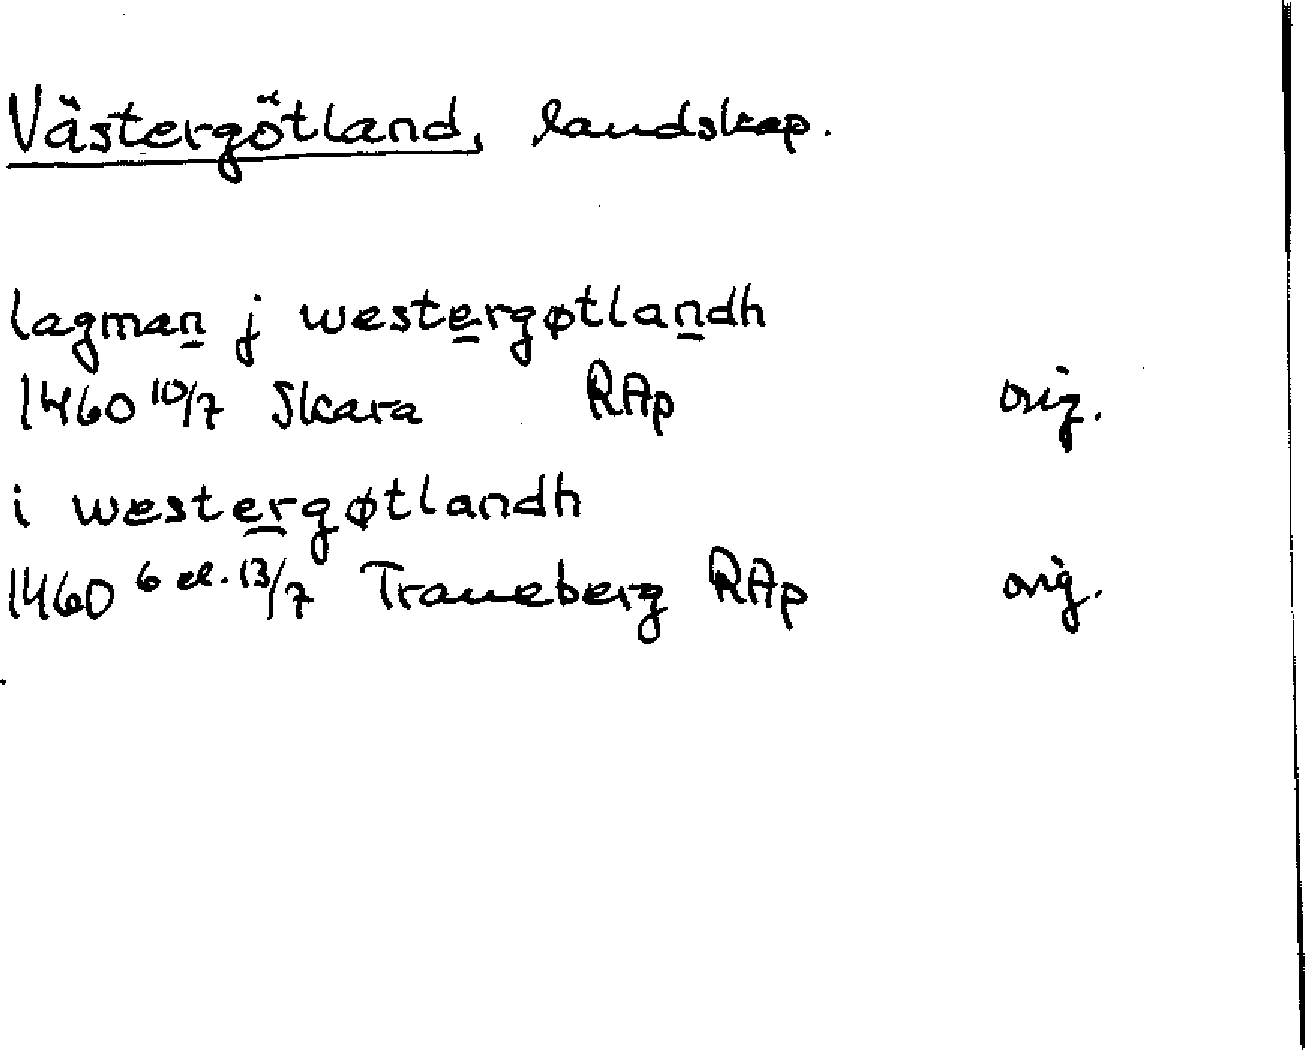 Västergötland, landskap.
lagman j westergøtlandh
1460 10/7 Skara RAp orig.
i westergøtlandh
1460 6 el. 13/7 Traneberg RAp orig.